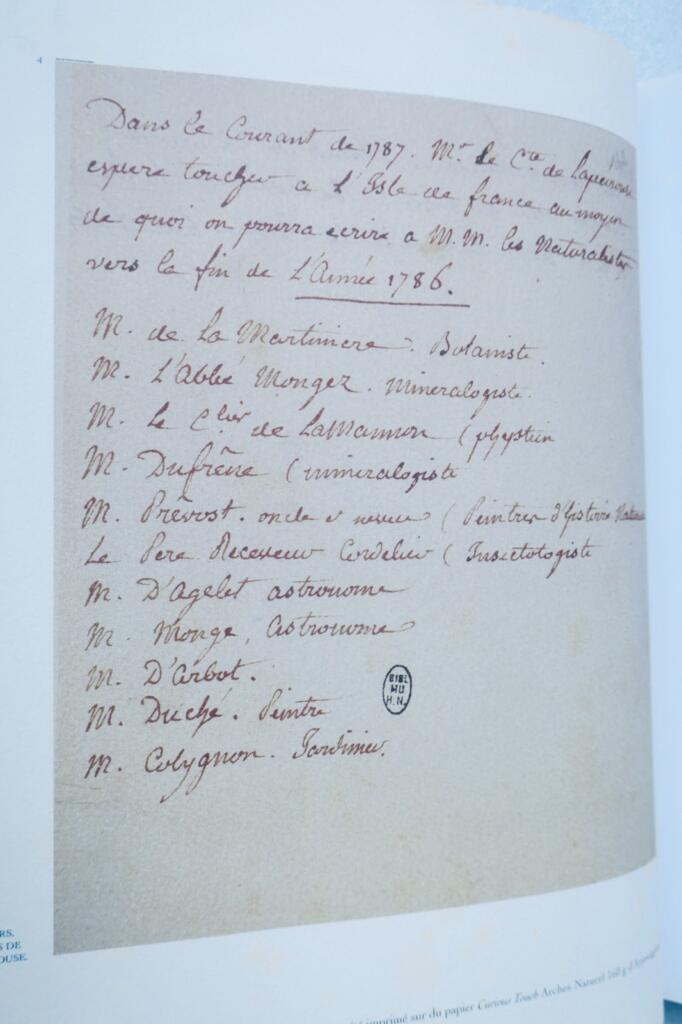 4
Dans le Courant de 1787. Mr. le Cte. de Lapeirouse
espere toucher a L'Isle de france au moyen
de quoi on pourra ecrire a M.M. les Naturalistes
vers la fin de L'Année 1786.
M. de La Martiniere. Botaniste.
M. L'Abbé Mongez. mineralogiste.
M. Le Clier de LaMannon (physicien
M. Dufrêne (mineralogiste
M. Prévost. oncle et neveu (Peintres d'histoire
Le Pere Receveur Cordelier (Insectologiste
M. D'Agelet astronome
M. Monge, Astronome
M. D'Arbot.
M. Duché. Peintre
M. Colygnon. Jardinier.
BIBL
MU
H.N.
RS.
S DE
OUSE.
imprimé sur du papier Curious Touch Arches Naturel